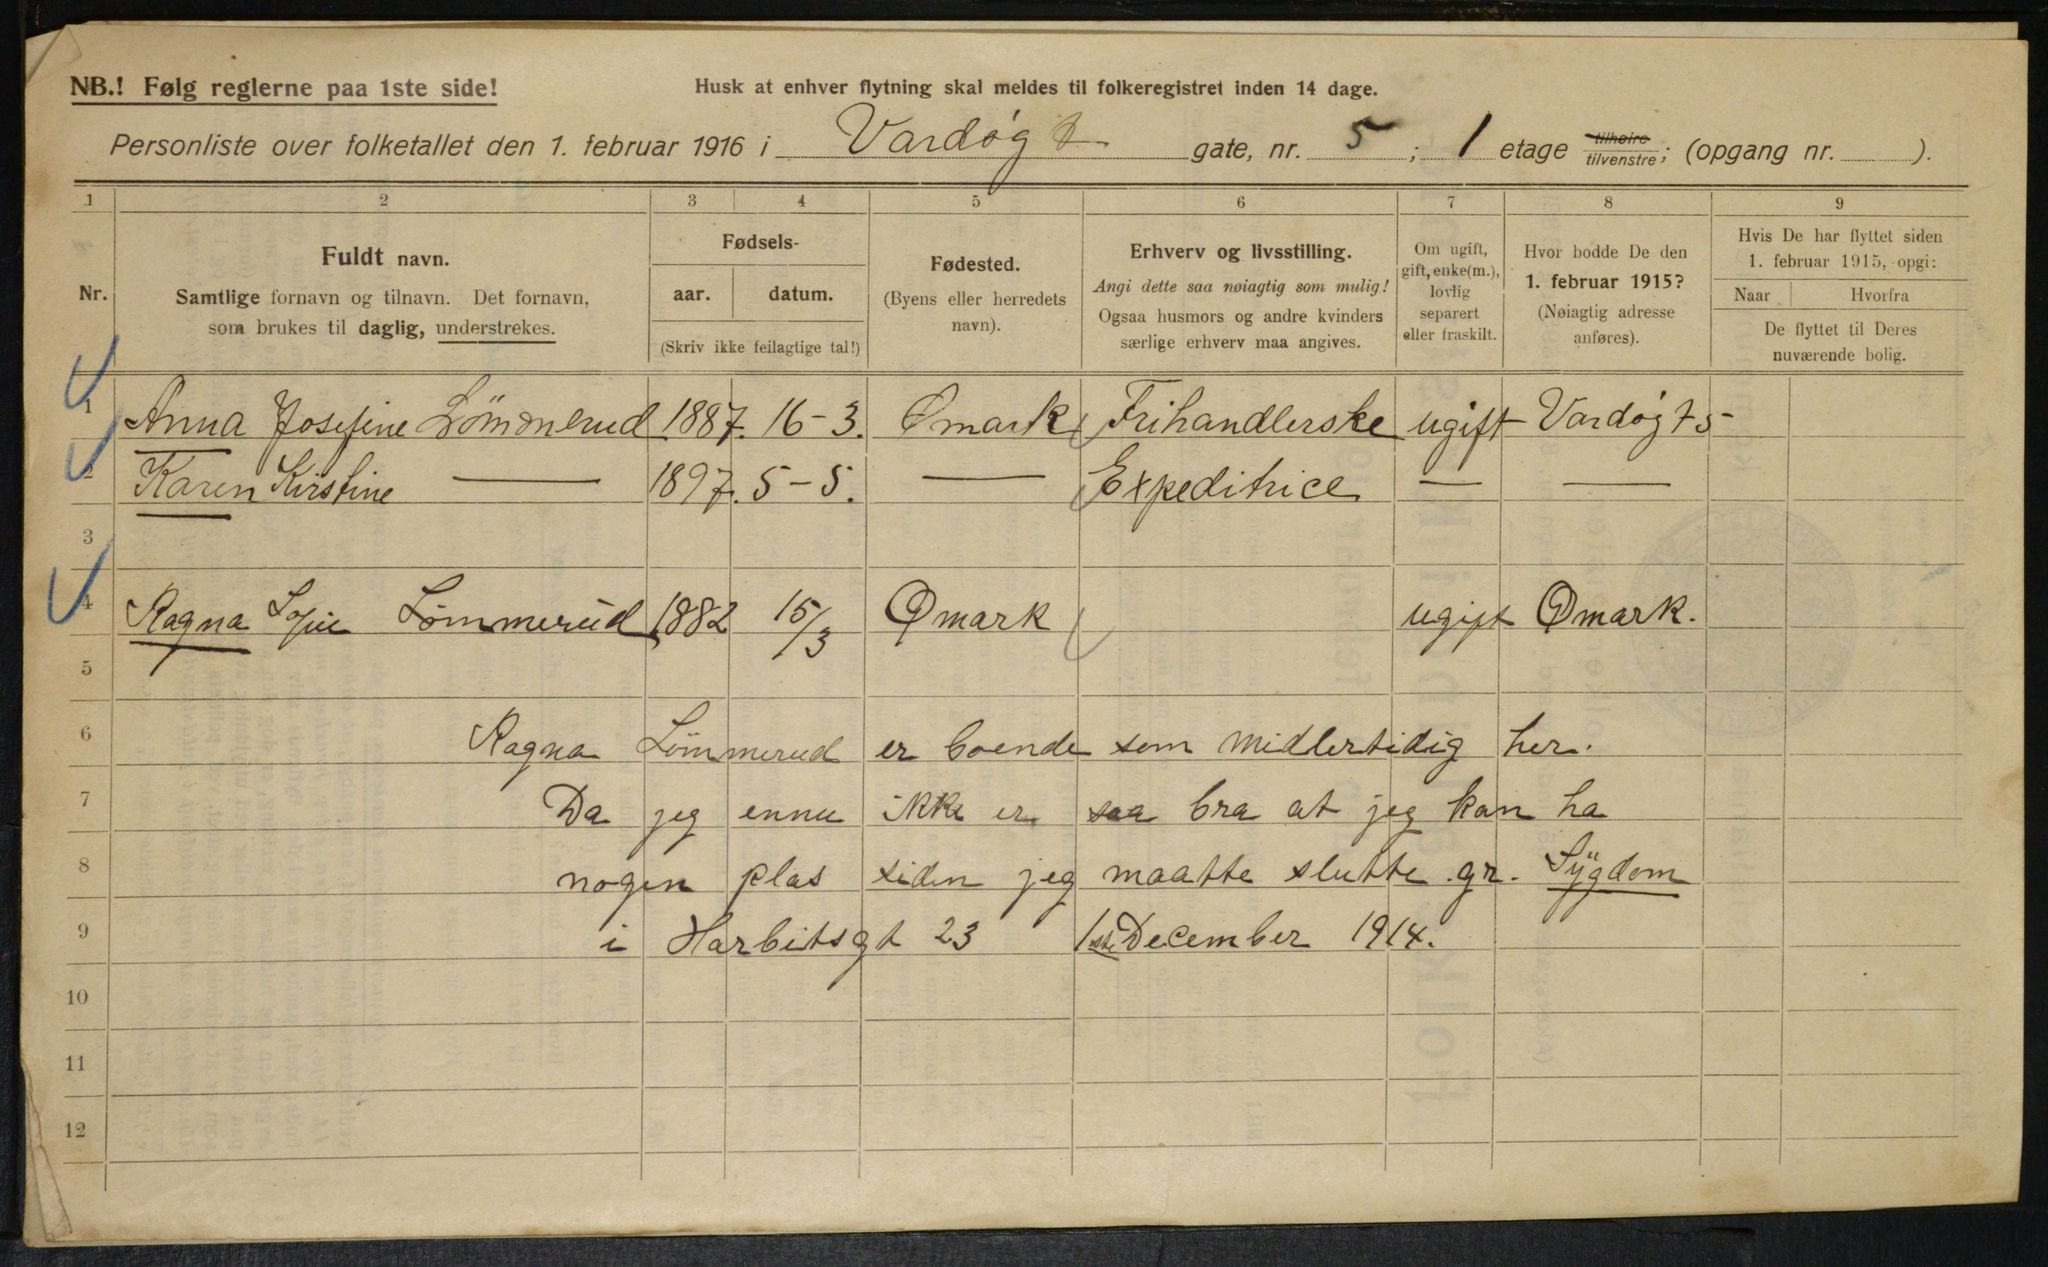 NB.! Følg reglerne paa 1ste side!
Husk at enhver flytning skal meldes til folkeregistret inden 14 dage.
Personliste over folketallet den 1. februar 1916 i Vardøgt gate, nr. 5; 1 etage tilhøire tilvenstre; (opgang nr. ).
1 2 3 4 5 6 7 8 9
Nr.
Fuldt navn.
Samtlige fornavn og tilnavn. Det fornavn,
som brukes til daglig, understrekes.
Fødsels-
aar. datum.
(Skriv ikke feilagtige tal!)
Fødested.
(Byens eller herredets
navn).
Erhverv og livsstilling.
Angi dette saa nøiagtig som mulig!
Ogsaa husmors og andre kvinders
særlige erhverv maa angives.
Om ugift,
gift, enke(m.),
lovlig
separert
eller fraskilt.
Hvor bodde De den
1. februar 1915?
(Nøiagtig adresse
anføres).
Hvis De har flyttet siden
1. februar 1915, opgi:
Naar Hvorfra
De flyttet til Deres
nuværende bolig.
1 Anna Josefine Lömmerud 1887. 16-3. Ømark Frihandlerske ugift Vardøgt 5
2 Karen Kirstine — 1897. 5-5. — Expeditrice — —
3
4 Ragna Sofie Lømmerud 1882 15/3 Ømark ugift Ømark.
5
6 Ragna Lømmerud er boende som midlertidig her.
7 Da jeg ennu ikke er saa bra at jeg kan ha
8 nogen plas siden jeg maatte slutte gr. Sygdom
9 i Harbitsgt 23 1ste December 1914.
10
11
12